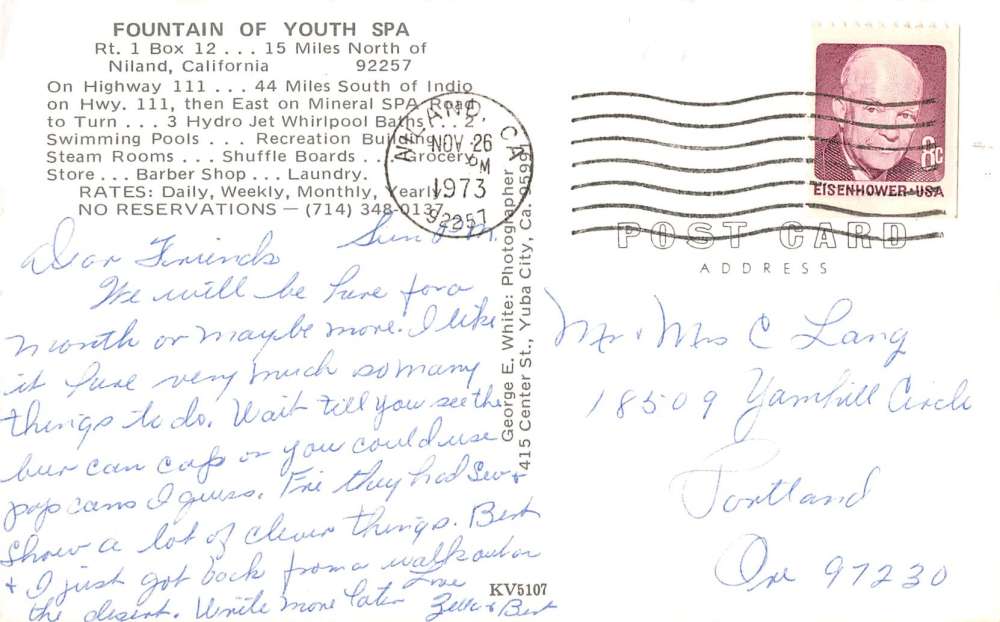 FOUNTAIN OF YOUTH SPA
Rt. 1 Box 12 . . . 15 Miles North of
Niland, California 92257
On Highway 111 . . . 44 Miles South of Indio
on Hwy. 111, then East on Mineral SPA Road
to Turn . . . 3 Hydro Jet Whirlpool Baths . . 2
Swimming Pools . . . Recreation Building
Steam Rooms . . . Shuffle Boards . . Grocery
Store . . . Barber Shop . . . Laundry.
RATES: Daily, Weekly, Monthly, Yearly
NO RESERVATIONS — (714) 348-0137
NILAND, CA
NOV 26
PM
1973
92257
8c
EISENHOWER·USA
POST CARD
ADDRESS
Sun P.M.
Dear Friends
We will be here for a
month or maybe more. I like
it here very much so many
things to do. Wait till you see the
beer can caps or you could use
pop cans I guess. Fri they had Sew +
Show a lot of clever things. Bert
+ I just got back from a walk out on
the desert. Write more later Love
& Bert
George E. White: Photographer
415 Center St., Yuba City, Ca. 95991
KV5107
Mr & Mrs C Lang
18509 Yamhill Circle
Portland
Ore 97230